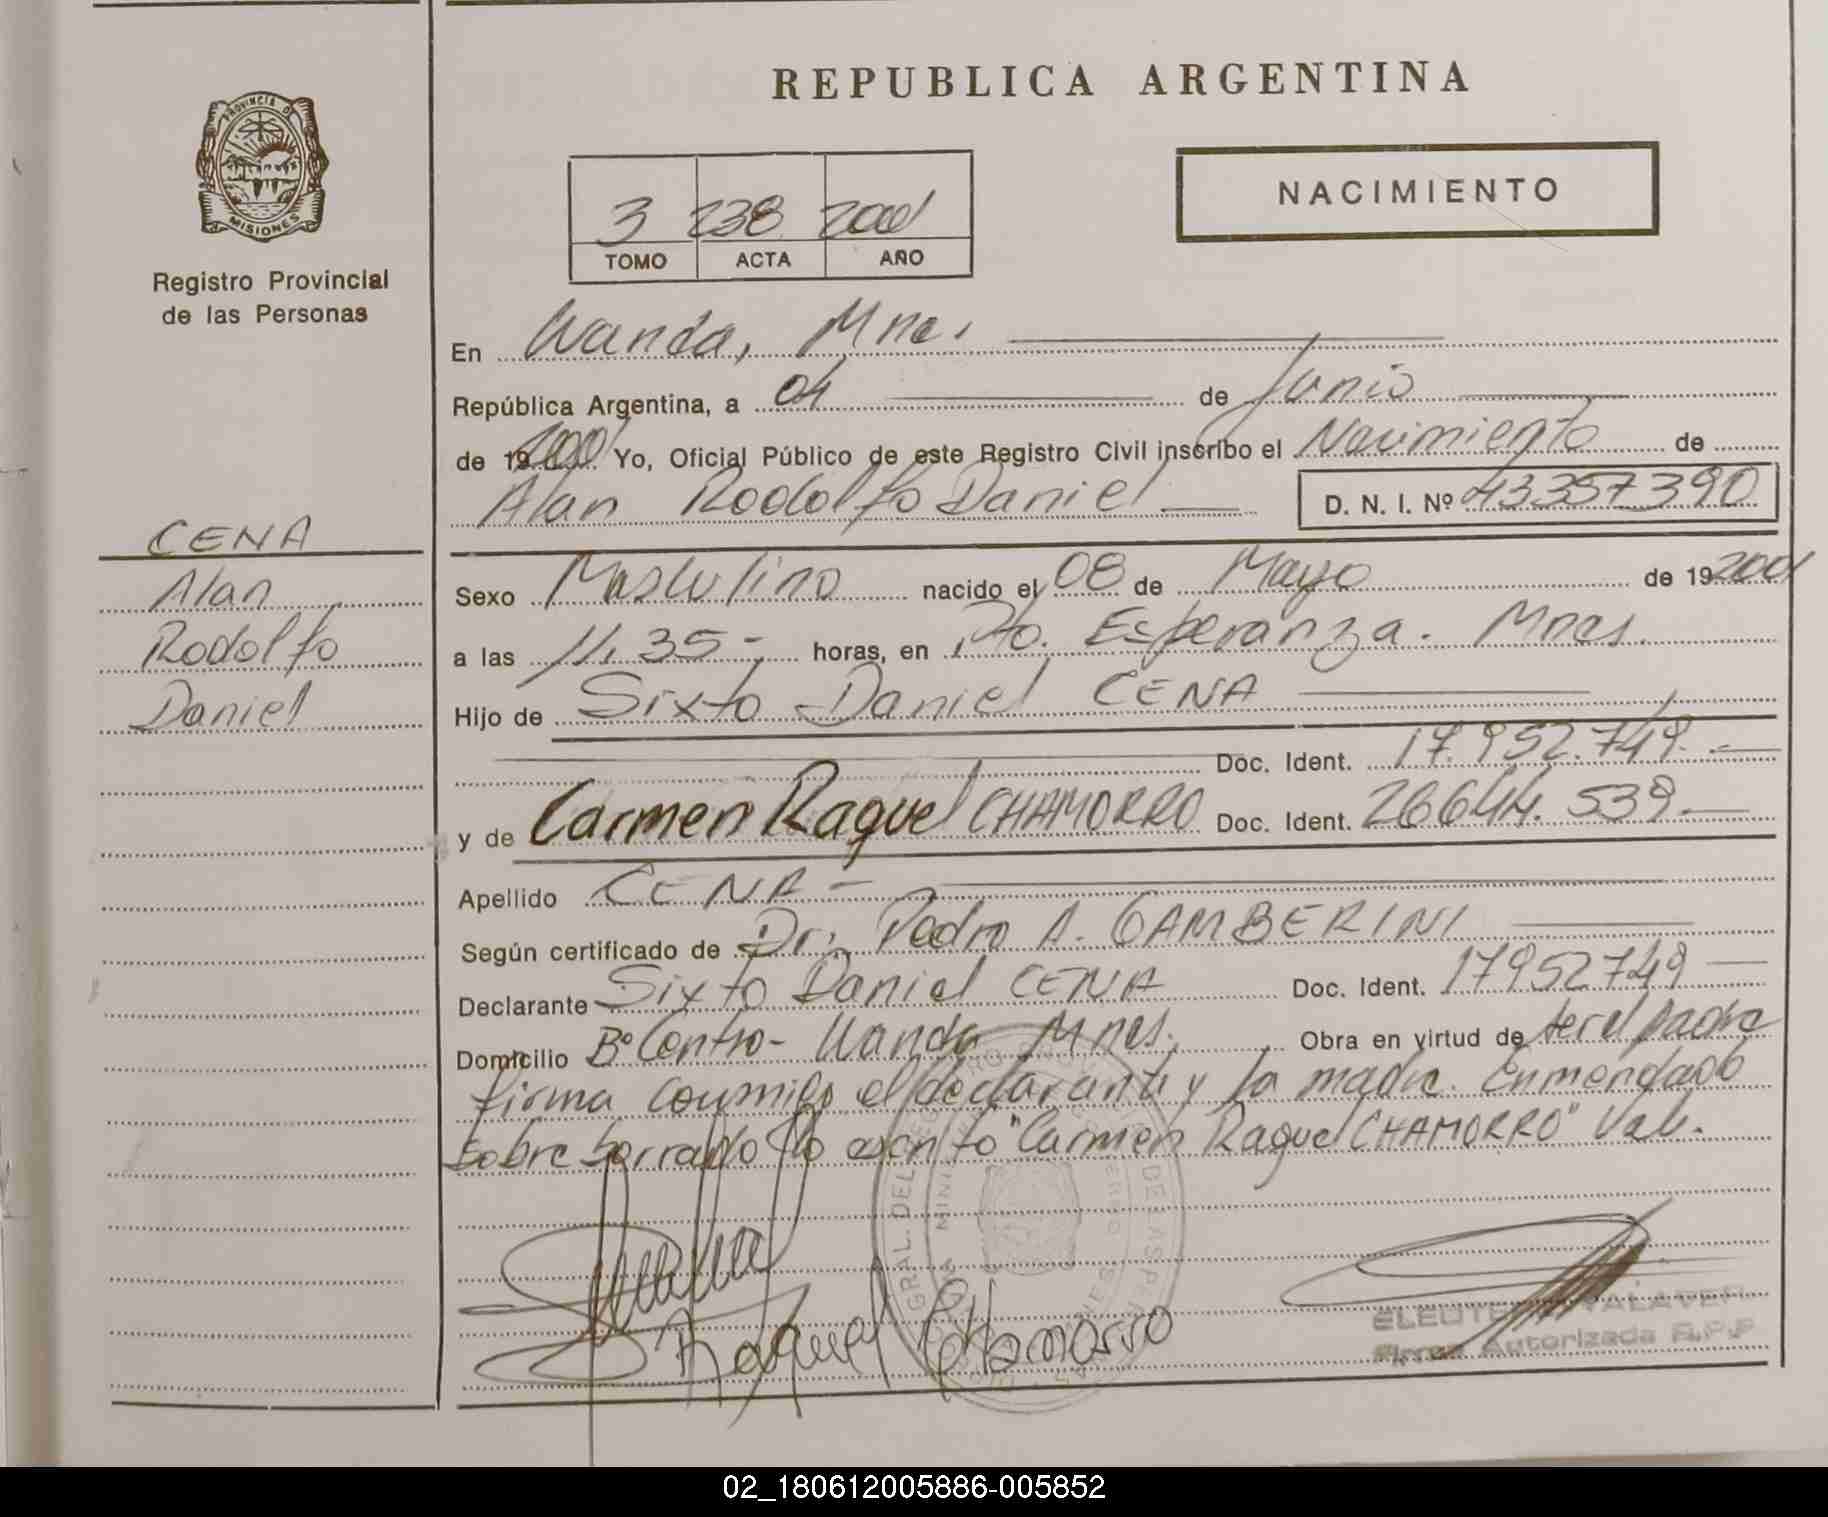 REPUBLICA ARGENTINA
PROVINCIA DE
MISIONES
Registro Provincial
de las Personas
3 238 2001
TOMO ACTA AÑO
NACIMIENTO
En Wanda, Mnes.
República Argentina, a 04 de Junio
de 19 2001 Yo, Oficial Público de este Registro Civil inscribo el Nacimiento de
Alan Rodolfo Daniel D. N. I. Nº 43357390
CENA
Alan
Rodolfo
Daniel
Sexo Masculino nacido el 08 de Mayo de 19 2001
a las 11,35- horas, en Pto. Esperanza. Mnes.
Hijo de Sixto Daniel CENA
Doc. Ident. 17.952.749.-
y de Carmen Raquel CHAMORRO Doc. Ident. 26644.539.-
Apellido CENA-
Según certificado de Dr. Pedro A. GAMBERINI
Declarante Sixto Daniel CENA Doc. Ident. 17952749
Domicilio Bº Centro- Wanda Mnes. Obra en virtud de ser el padre
firma conmigo el declarante y la madre. Enmendado
sobre borrado lo escrito "Carmen Raquel CHAMORRO" Vale.
Raquel Chamorro
Firma Autorizada R.P.P
02_180612005886-005852